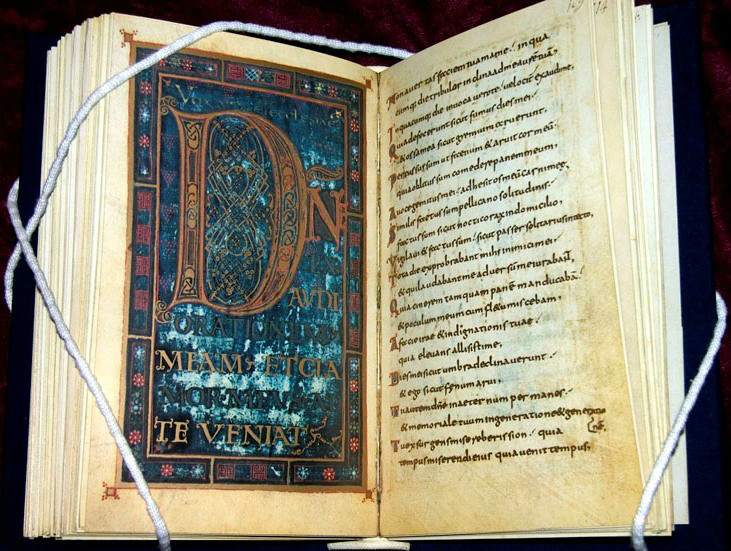 DÑ
AVDI
ORATIONEM
MEAM ET CLA
MOR MEVS A
TE VENIAT
Non avertas faciem tuam a me . in qua
cumq; die tribulor inclina ad me aurē tuā,
In quacumq; die invocavero te . velociter exaudi me,
Quia defecerunt sicut fumus dies mei .
& ossa mea sicut gremium aruerunt,
Percussus sum ut fenum & aruit cor meū .
quia oblitus sum comedere panem meum,
A voce gemitus mei . adhesit os meū carni meę,
Similis factus sum pellicano solitudinis .
factus sum sicut nocticorax in domicilio,
Vigilavi & factus sum . sicut passer solitarius in tecto,
Tota die exprobrabant mihi inimici mei .
& qui laudabant me adversū me iurabant,
Quia cinerem tamquam panē manducabā .
& poculum meum cum fl&u miscebam,
A facie irae & indignationis tuae .
quia elevans allisisti me,
Dies mei sicut umbra declinaverunt .
& ego sicut fenum arui,
Tu autem dn̄e in aeternum permanes .
& memoriale tuum in generatione & generatio
nē,
Tu exsurgens misereberis sion . quia
tempus miserendi eius quia venit tempus,